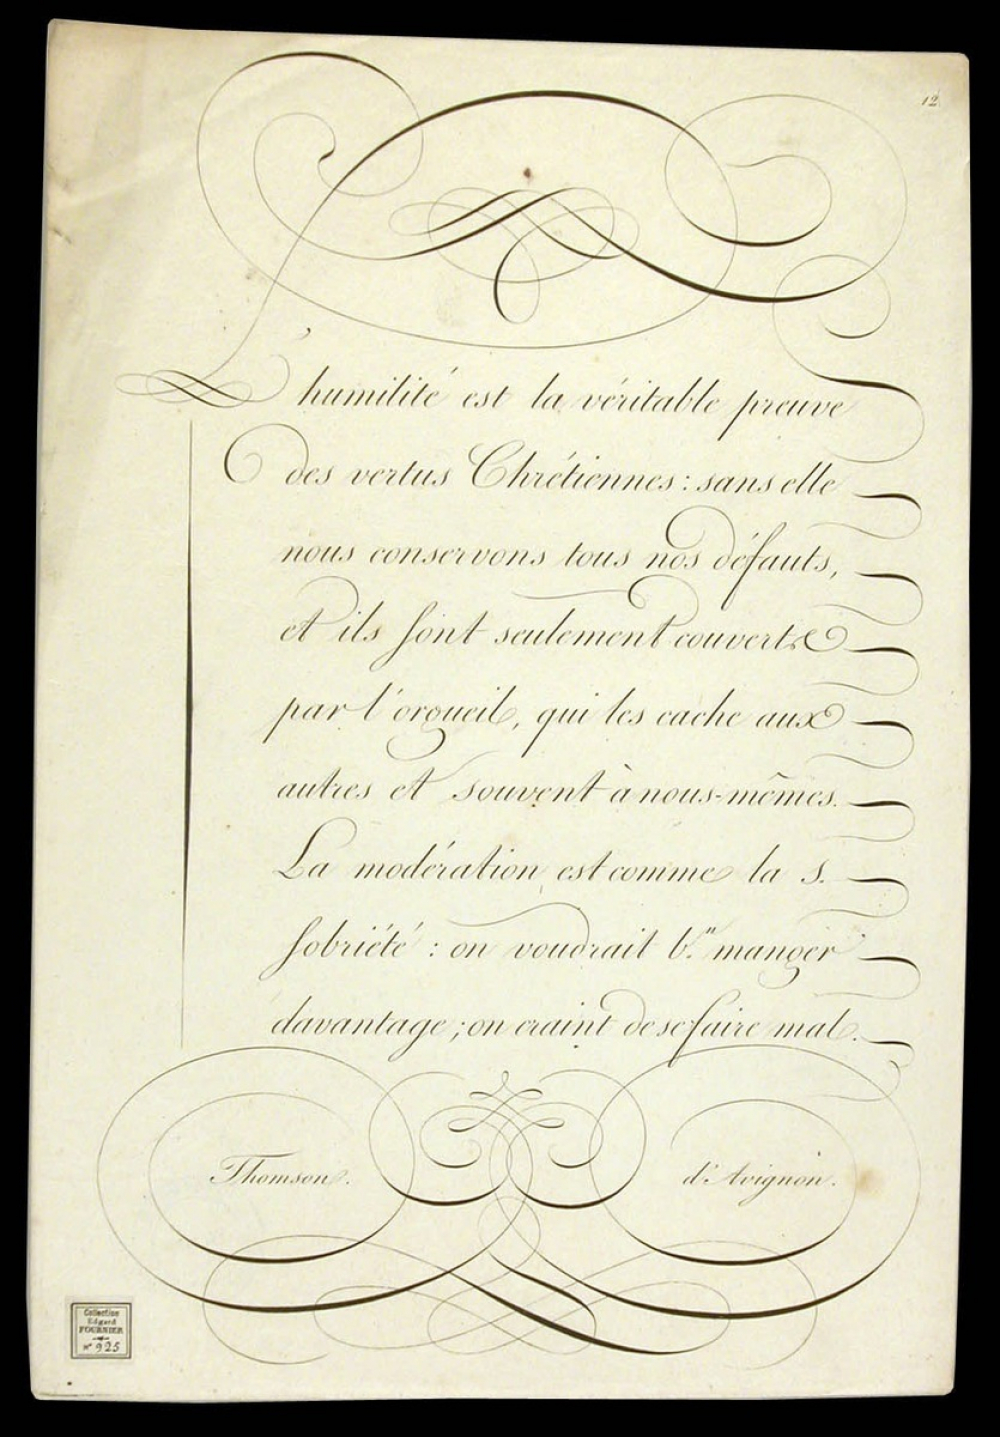 12
L'humilité est la véritable preuve
des vertus Chrétiennes : sans elle
nous conservons tous nos défauts,
et ils sont seulement couverts
par l'orgueil, qui les cache aux
autres et souvent à nous-mêmes.
La modération est comme la s.
sobriété : on voudrait b.n manger
davantage ; on craint de se faire mal.
Thomson.
d'Avignon.
Collection
Edgard
FOURNIER
N° 925